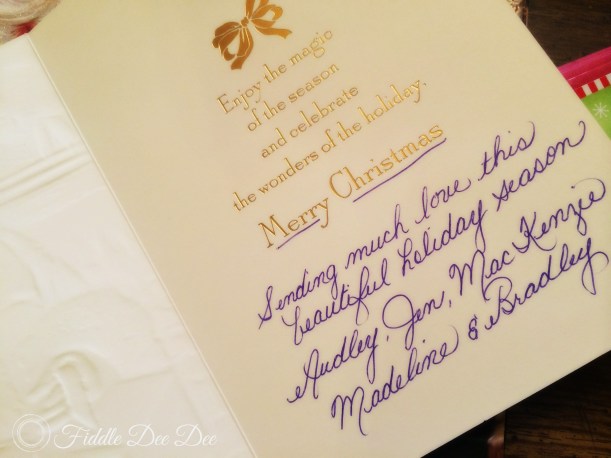 Enjoy the magic
of the season
and celebrate
the wonders of the holiday.
Merry Christmas
Sending much love this
beautiful holiday season
Audley, Jen, MacKenzie
Madeline & Bradley
© Fiddle Dee Dee